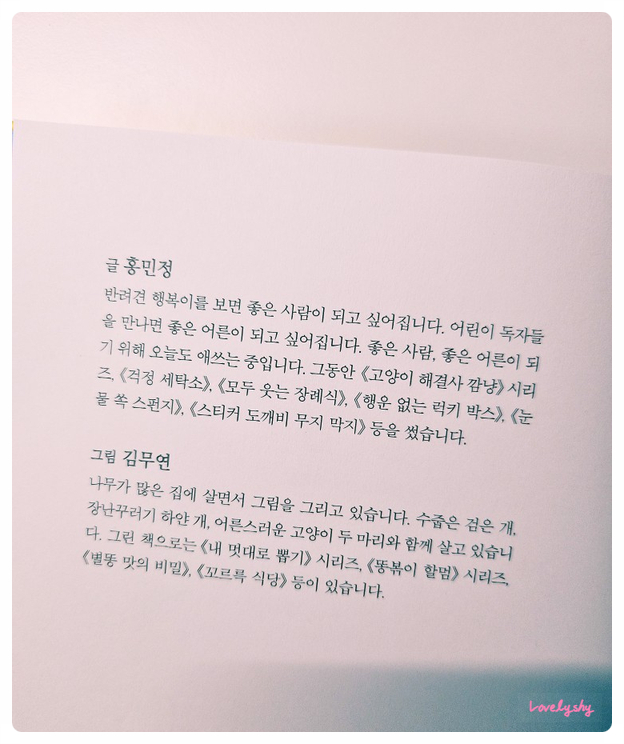 글 홍민정
반려견 행복이를 보면 좋은 사람이 되고 싶어집니다. 어린이 독자들
을 만나면 좋은 어른이 되고 싶어집니다. 좋은 사람, 좋은 어른이 되
기 위해 오늘도 애쓰는 중입니다. 그동안 《고양이 해결사 깜냥》 시리
즈, 《걱정 세탁소》, 《모두 웃는 장례식》, 《행운 없는 럭키 박스》, 《눈
물 쏙 스펀지》, 《스티커 도깨비 무지 막지》 등을 썼습니다.
그림 김무연
나무가 많은 집에 살면서 그림을 그리고 있습니다. 수줍은 검은 개,
장난꾸러기 하얀 개, 어른스러운 고양이 두 마리와 함께 살고 있습니
다. 그린 책으로는 《내 멋대로 뽑기》 시리즈, 《똥볶이 할멈》 시리즈,
《별똥 맛의 비밀》, 《꼬르륵 식당》 등이 있습니다.
Lovelyshy